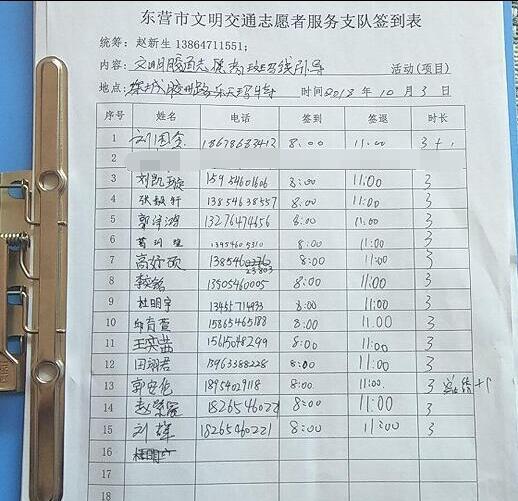 东营市文明交通志愿者服务支队签到表
统筹: 赵新生 13864711551;
内容: 文明交通志愿者斑马线引导 活动(项目)
地点: 东城胶州路 时间 2018 年 10 月 3 日
序号 姓名 电话 签到 签退 时长
1 刘国全 18678683412 8:00 11:00 3+1
2
3 刘凯璇 15954601606 8:00 11:00 3
4 张毅轩 13854638557 8:00 11:00 3
5 郭泽鸿 13276474656 8:00 11:00 3
6 13954605310 8:00 11:00 3
7 高 1385460 23803 8:00 11:00 3
8 13505460005 8:00 11:00 3
9 杜明宇 13455714933 8:00 11:00 3
10 邱育萱 15865465188 8:00 11.00 3
11 王奕茜 15615048299 8:00 11:00 3
12 田翊君 15963388228 8:00 11:00 3
13 郭安伦 1895409118 8:00 11:00 3 总结+1
14 赵 1826546022 8:00 11:00 3
15 刘 18265460221 8:00 11:00 3
16
17
18